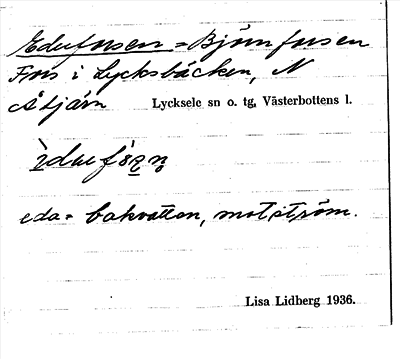 Edeforsen = Björnforsen
Fors i Lycksbäcken, N
Åtjärn Lycksele sn o. tg, Västerbottens l.
eda = bakvatten, motström.
Lisa Lidberg 1936.